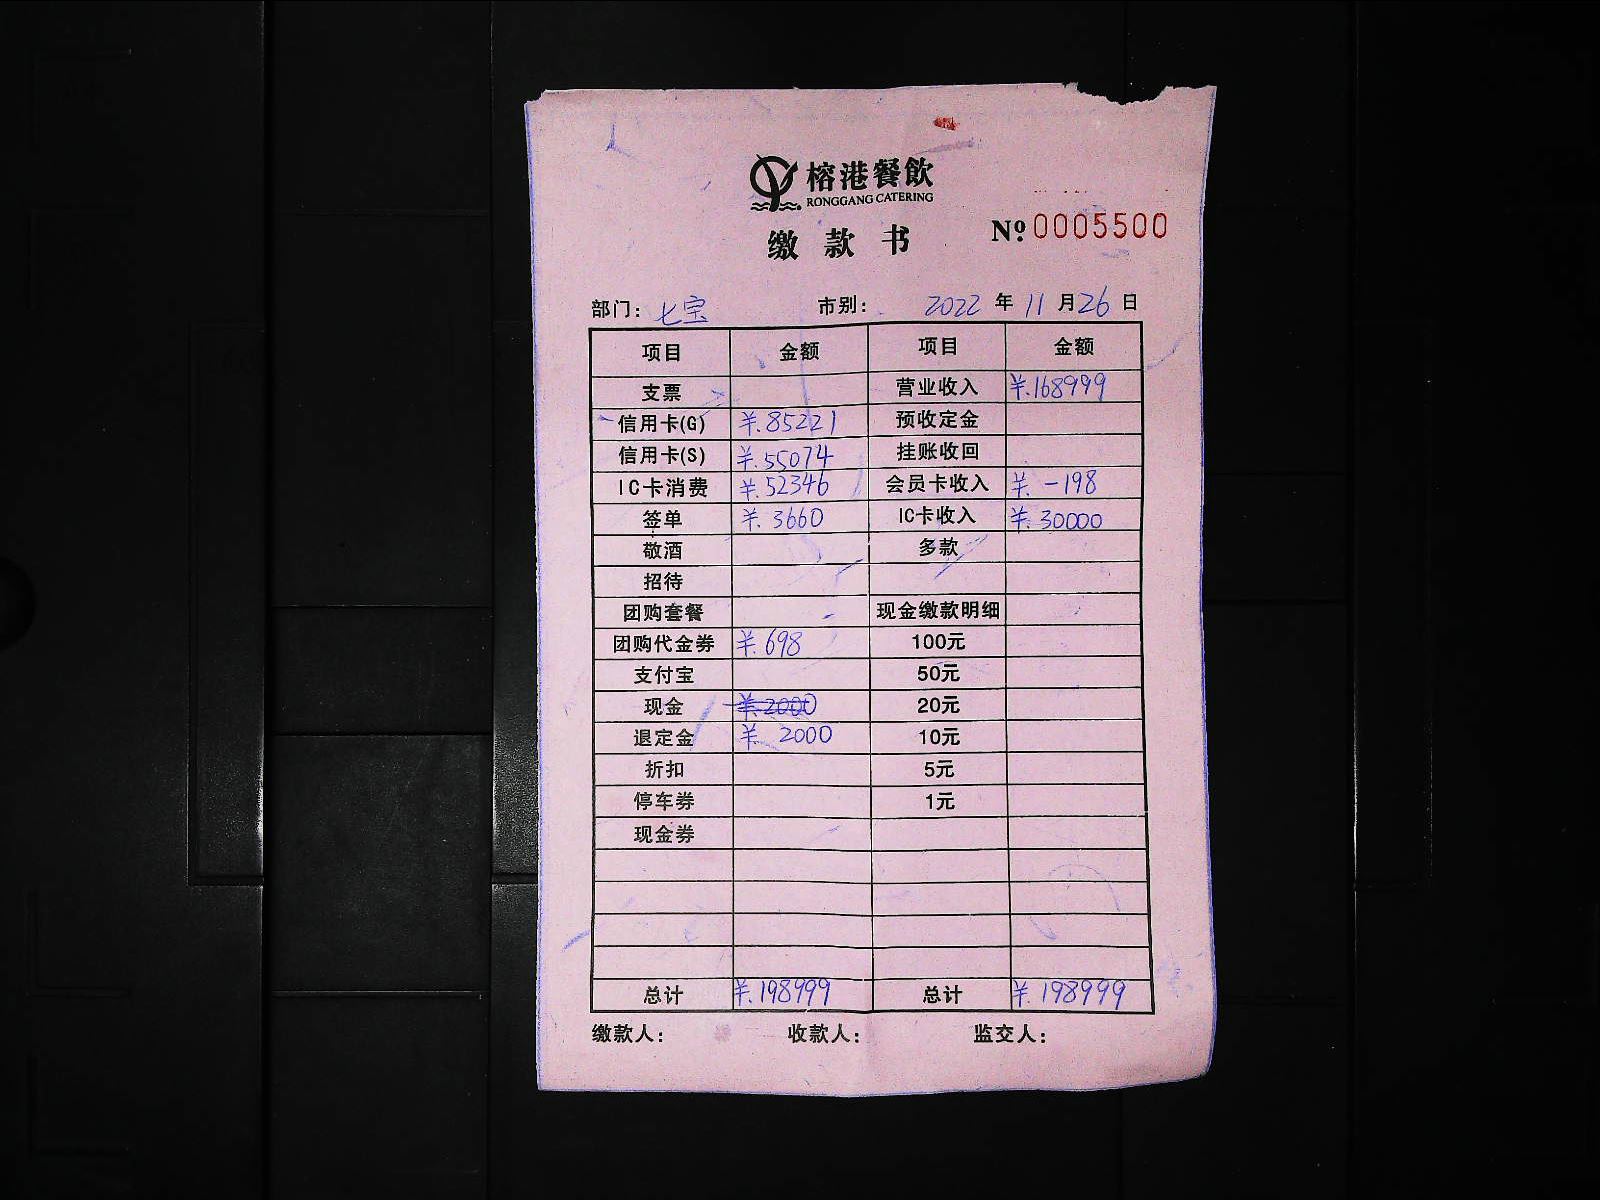 榕港餐飲
RONGGANG CATERING
缴款书 № 0005500
部门：七宝 市别： 2022 年 11 月 26 日
项目 金额 项目 金额
支票 营业收入 ¥.168999
信用卡(G) ¥.85221 预收定金
信用卡(S) ¥.55074 挂账收回
IC卡消费 ¥.52346 会员卡收入 ¥.-198
签单 ¥.3660 IC卡收入 ¥.30000
敬酒 多款
招待
团购套餐 现金缴款明细
团购代金券 ¥.698 100元
支付宝 50元
现金 ¥.2000 20元
退定金 ¥.2000 10元
折扣 5元
停车券 1元
现金券
总计 ¥.198999 总计 ¥.198999
缴款人： 收款人： 监交人：